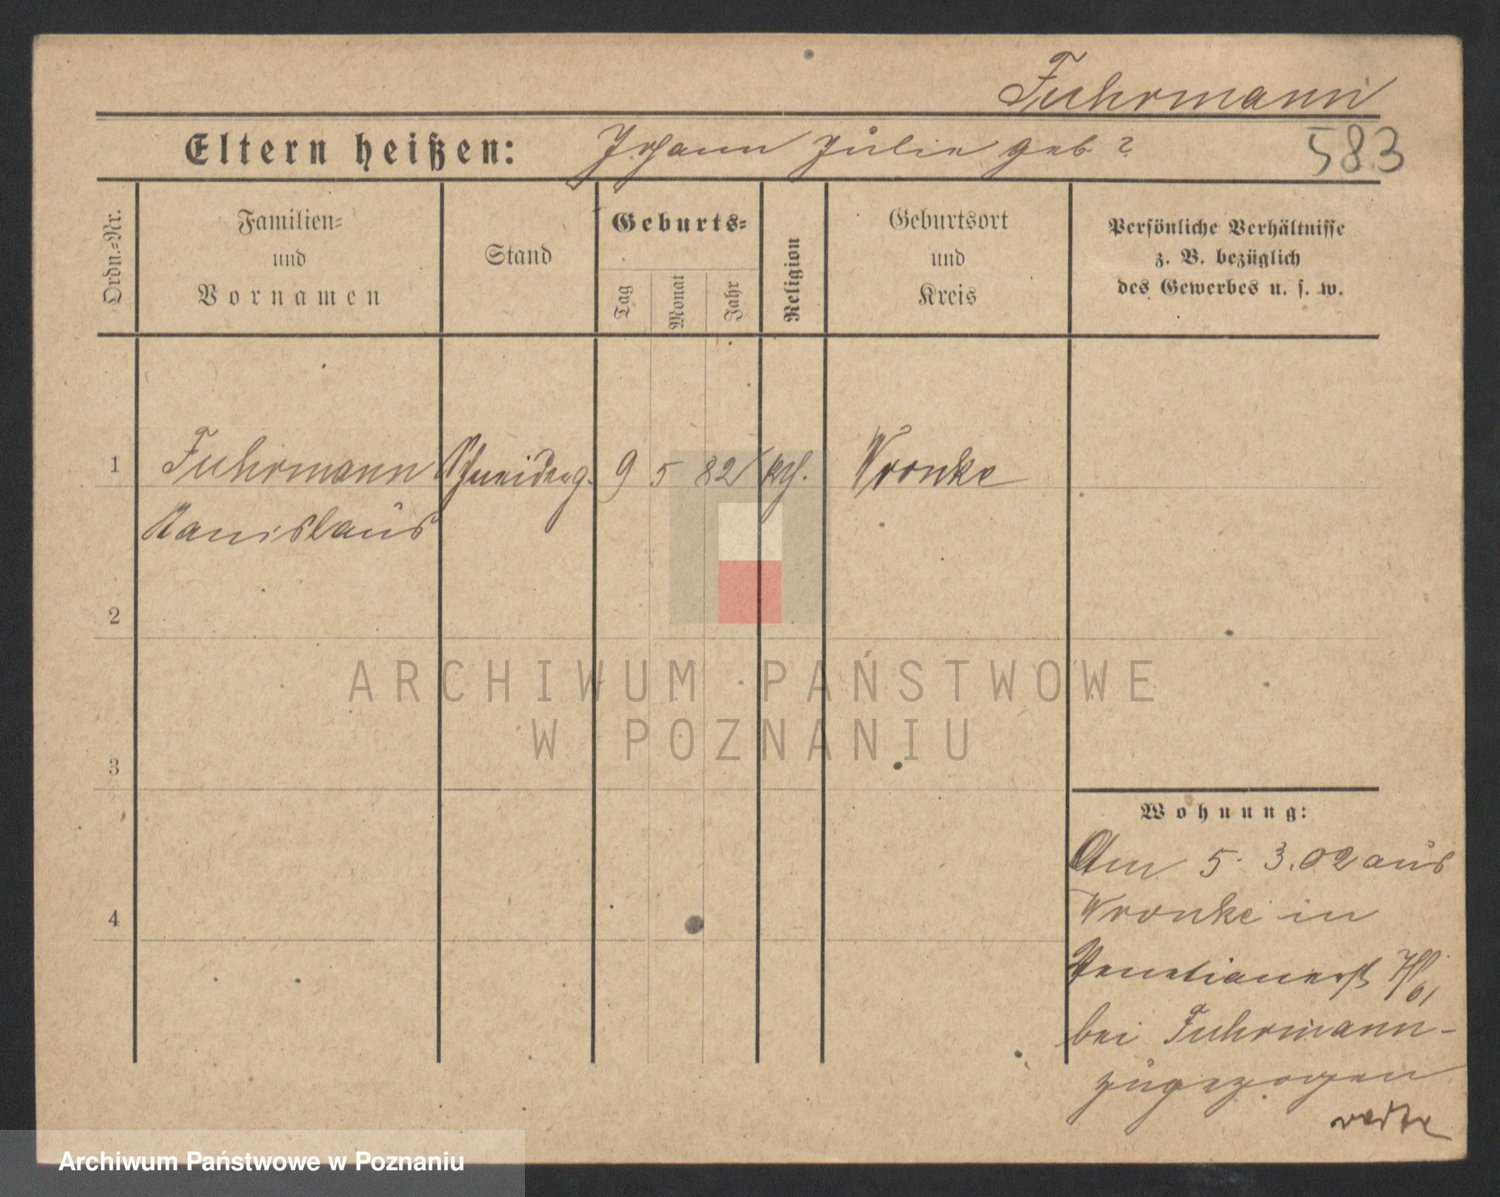 Fuhrmann
Eltern heißen: Johann Julie geb. ?
583
Ordn.=Nr.
Familien=
und
Vornamen
Stand
Geburts=
Tag
Monat
Jahr
Religion
Geburtsort
und
Kreis
Persönliche Verhältnisse
z. B. bezüglich
des Gewerbes u. s. w.
1 Fuhrmann Schneiderg. 9 5 82 kth. Wronke
Stanislaus
2
3
4
ARCHIWUM PAŃSTWOWE
W POZNANIU
Wohnung:
Am 5. 3. 02 aus
Wronke in
Venetianerst
bei Fuhrmann-
zugezogen
Archiwum Państwowe w Poznaniu